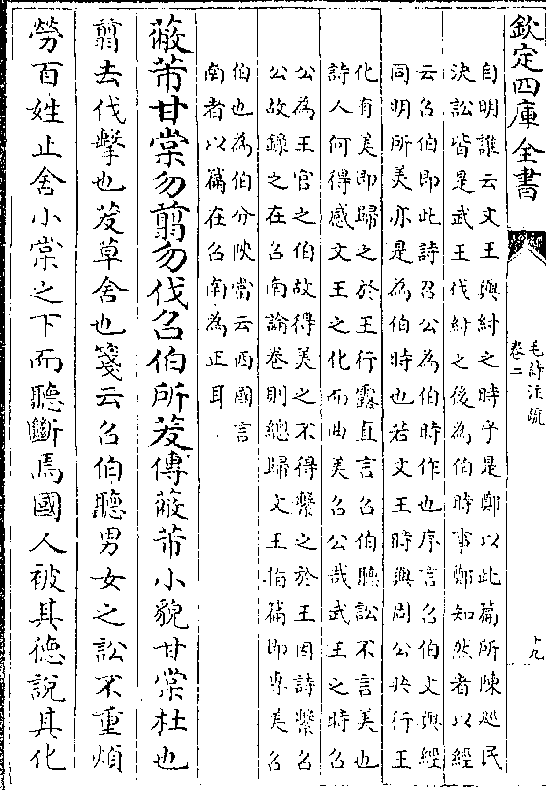 欽定四庫全書
毛詩注疏
卷二
十九
自明誰云文王與紂之時乎是鄭以此篇所陳巡民
決訟皆是武王伐紂之後為伯時事鄭知然者以經
云召伯即此詩召公為伯時作也序言召伯文與經
同明所美亦是為伯時也若文王時與周公共行王
化有美即歸之於王行露直言召伯聽訟不言美也
詩人何得感文王之化而曲美召公哉武王之時召
公為王官之伯故得美之不得繫之於王因詩繫召
公故錄之在召南論卷則總歸文王指篇即專美召
伯也為伯分陝當云西國言
南者以篇在召南為正耳
蔽芾甘棠勿翦勿伐召伯所茇傳蔽芾小貌甘棠杜也
翦去伐擊也茇草舍也箋云召伯聽男女之訟不重煩
勞百姓止舍小棠之下而聽斷焉國人被其德說其化